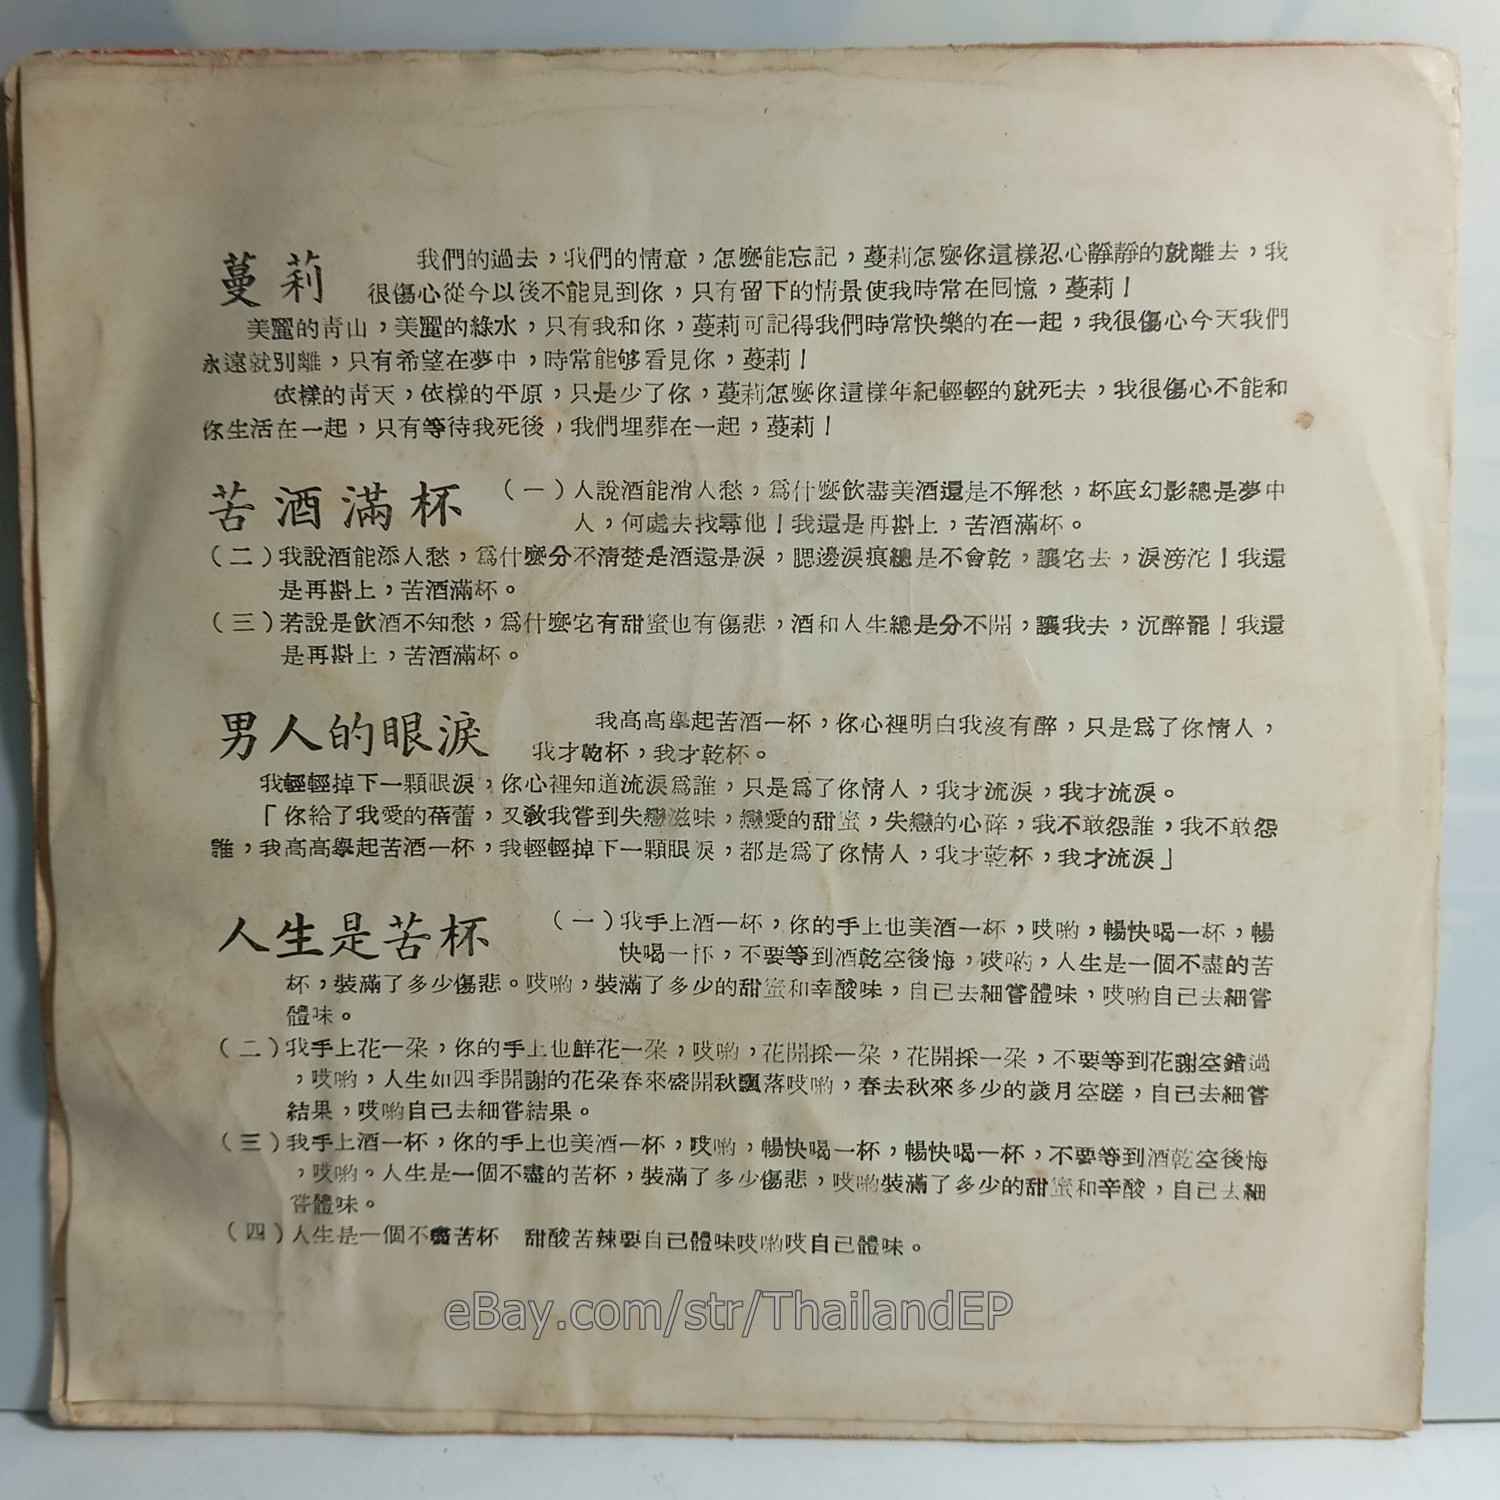 蔓莉
我們的過去，我們的情意，怎麼能忘記，蔓莉怎麼你這樣忍心靜靜的就離去，我
很傷心從今以後不能見到你，只有留下的情景使我時常在回憶，蔓莉！
美麗的靑山，美麗的綠水，只有我和你，蔓莉可記得我們時常快樂的在一起，我很傷心今天我們
永遠就別離，只有希望在夢中，時常能够看見你，蔓莉！
依樣的靑天，依樣的平原，只是少了你，蔓莉怎麼你這樣年紀輕輕的就死去，我很傷心不能和
你生活在一起，只有等待我死後，我們埋葬在一起，蔓莉！
苦酒滿杯
（一）人說酒能消人愁，爲什麼飮盡美酒還是不解愁，杯底幻影總是夢中
人，何處去找尋他！我還是再斟上，苦酒滿杯。
（二）我說酒能添人愁，爲什麼分不淸楚是酒還是淚，腮邊淚痕總是不會乾，讓它去，淚滂沱！我還
是再斟上，苦酒滿杯。
（三）若說是飮酒不知愁，爲什麼它有甜蜜也有傷悲，酒和人生總是分不開，讓我去，沉醉罷！我還
是再斟上，苦酒滿杯。
男人的眼淚
我高高舉起苦酒一杯，你心裡明白我沒有醉，只是爲了你情人，
我才乾杯，我才乾杯。
我輕輕掉下一顆眼淚，你心裡知道流淚爲誰，只是爲了你情人，我才流淚，我才流淚。
「你給了我愛的蓓蕾，又敎我嘗到失戀滋味，戀愛的甜蜜，失戀的心碎，我不敢怨誰，我不敢怨
誰，我高高舉起苦酒一杯，我輕輕掉下一顆眼淚，都是爲了你情人，我才乾杯，我才流淚」
人生是苦杯
（一）我手上酒一杯，你的手上也美酒一杯，哎喲，暢快喝一杯，暢
快喝一杯，不要等到酒乾空後悔，哎喲，人生是一個不盡的苦
杯，裝滿了多少傷悲。哎喲，裝滿了多少的甜蜜和辛酸味，自己去細嘗體味，哎喲自己去細嘗
體味。
（二）我手上花一朶，你的手上也鮮花一朶，哎喲，花開採一朶，花開採一朶，不要等到花謝空錯過
，哎喲，人生如四季開謝的花朶春來盛開秋飄落哎喲，春去秋來多少的歲月空蹉，自己去細嘗
結果，哎喲自己去細嘗結果。
（三）我手上酒一杯，你的手上也美酒一杯，哎喲，暢快喝一杯，暢快喝一杯，不要等到酒乾空後悔
，哎喲。人生是一個不盡的苦杯，裝滿了多少傷悲，哎喲裝滿了多少的甜蜜和辛酸，自己去細
嘗體味。
（四）人生是一個不盡苦杯　甜酸苦辣要自己體味哎喲哎自己體味。
eBay.com/str/ThailandEP